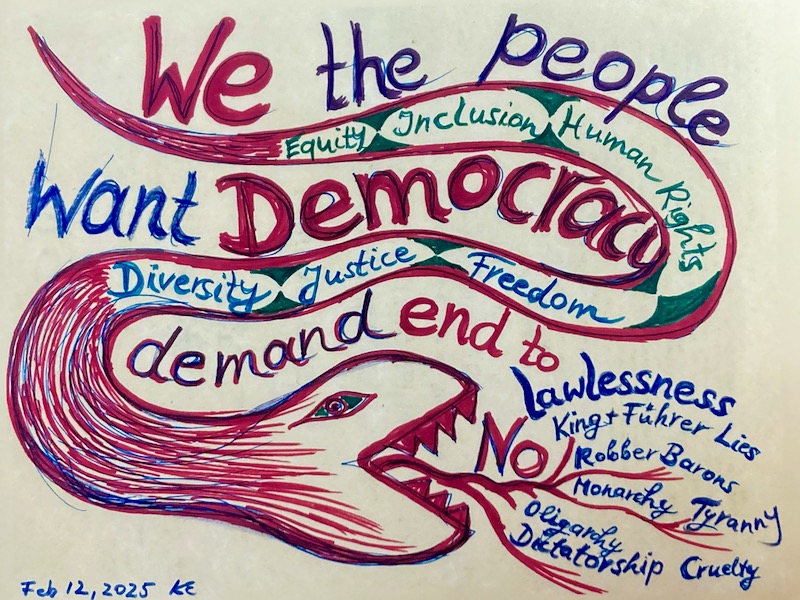 We the people
Equity Inclusion Human Rights
Want Democracy
Diversity Justice Freedom
demand end to
Lawlessness
King + Führer Lies
NO!
Robber Barons
Monarchy Tyranny
Oligarchy
Dictatorship Cruelty
Feb 12, 2025 KE